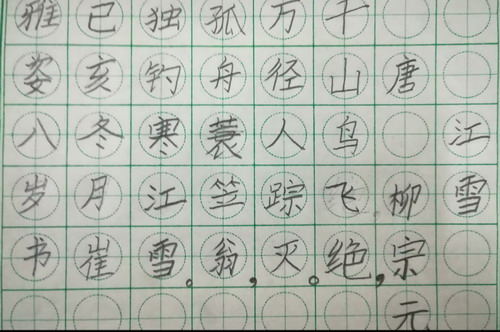 江雪
唐 柳宗元
千山鸟飞绝，
万径人踪灭。
孤舟蓑笠翁，
独钓寒江雪。
己亥冬月崔
雅姿八岁书